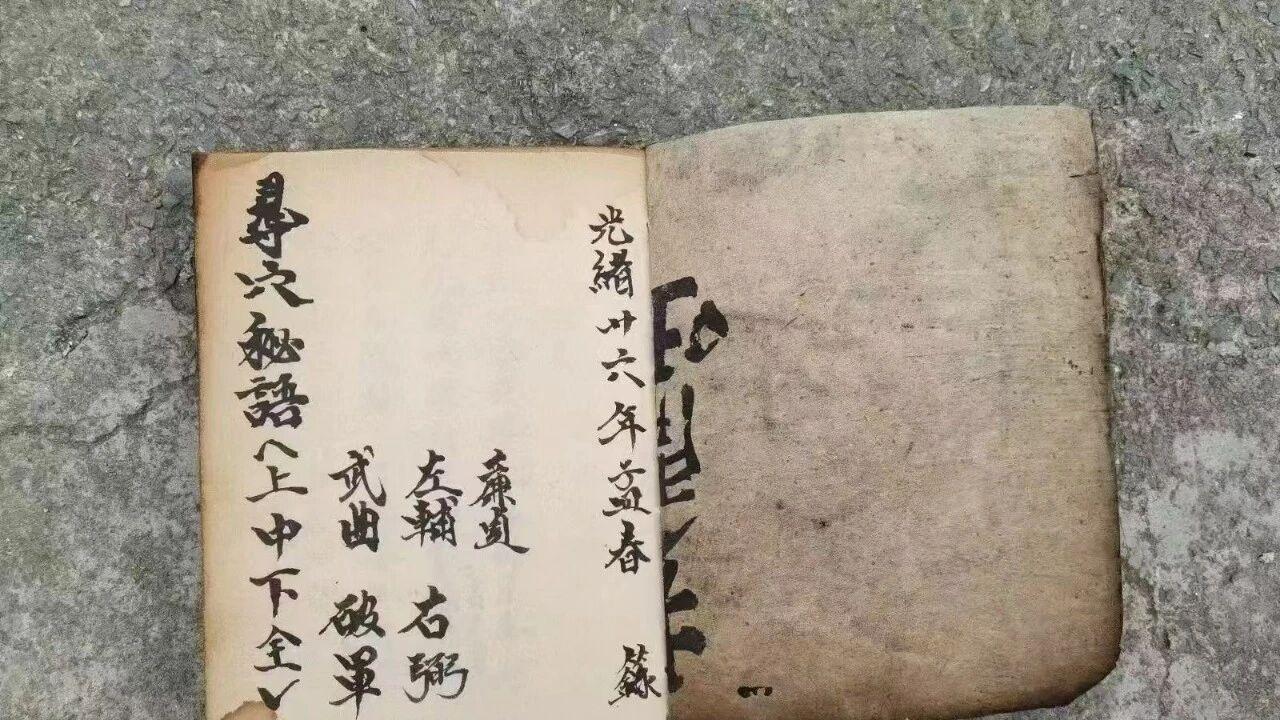 光緒廿六年孟春 錄
廉貞
左輔 右弼
武曲 破軍
尋穴秘語(上中下全)